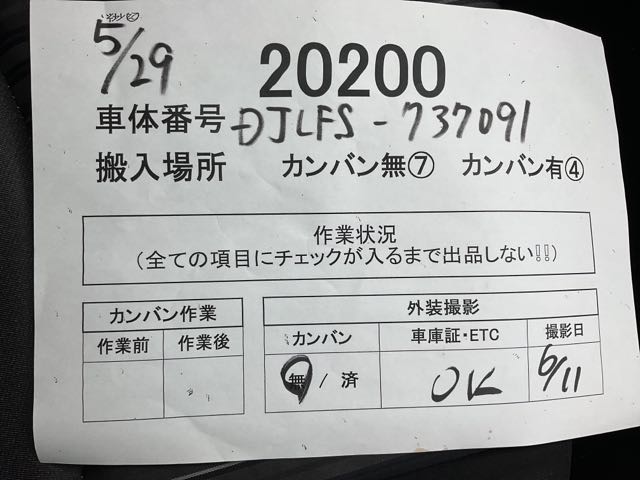 5/29
20200
車体番号 DJLFS-737091
搬入場所 カンバン無⑦ カンバン有④
作業状況
(全ての項目にチェックが入るまで出品しない!!)
カンバン作業
作業前 作業後
外装撮影
カンバン 車庫証・ETC 撮影日
無 / 済 OK 6/11